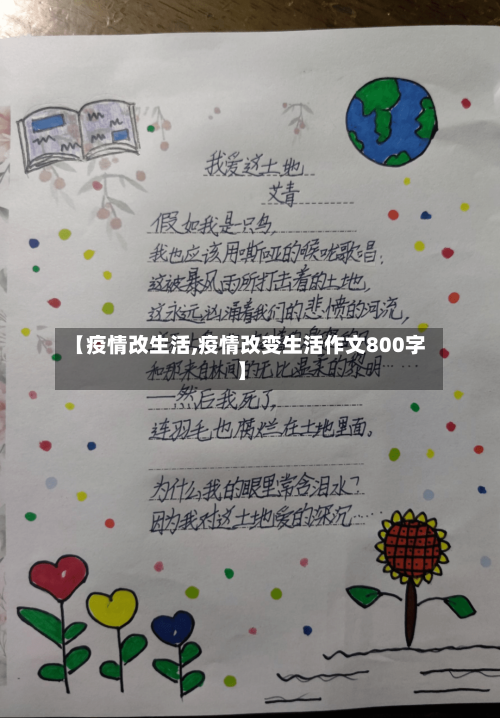 我爱这土地
艾青
假如我是只鸟,
我也应该用嘶哑的喉咙歌唱:
这被暴风雨所打击着的土地,
这永远汹涌着我们的悲愤的河流,
【疫情改生活,疫情改变生活作文800字
】
和那来自林间的无比温柔的黎明……
——然后我死了,
连羽毛也腐烂在土地里面。
为什么我的眼里常含泪水?
因为我对这土地爱的深沉……